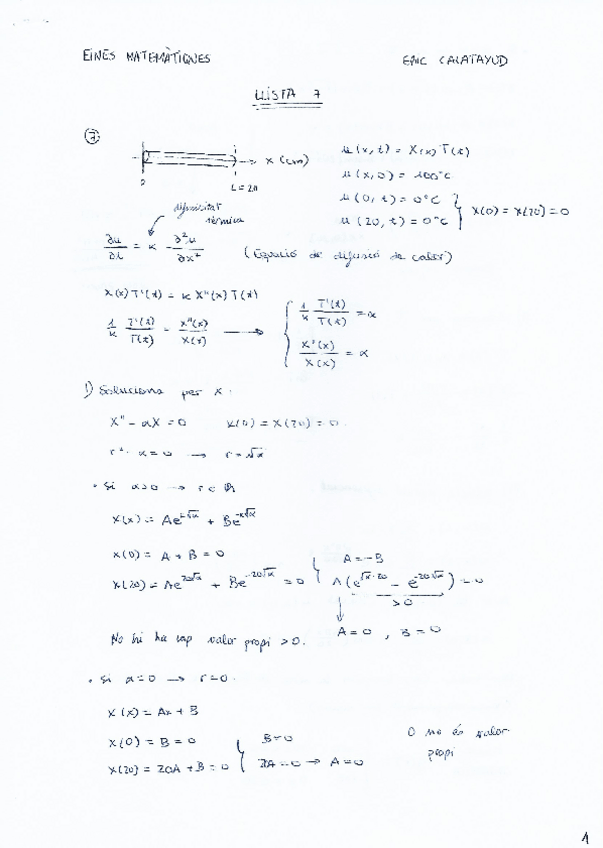 EINES MATEMÀTIQUES
ERIC CALATAYUD
LLISTA 7
7
x (cm)
0
L = 20
u(x,t) = X(x) T(t)
u(x,0) = 100°C
u(0,t) = 0°C
u(20,t) = 0°C
X(0) = X(20) = 0
difusivitat
tèrmica
∂u/∂t = κ ∂²u/∂x² (Equació de difusió de calor)
X(x) T'(t) = κ X''(x) T(t)
1/κ T'(t)/T(t) = X''(x)/X(x) →
1/κ T'(t)/T(t) = α
X''(x)/X(x) = α
1) Soluciona per X.
X'' - αX = 0 X(0) = X(20) = 0.
r² - α = 0 → r = √α
• Si α>0 → r ∈ ℝ
X(x) = Ae^{x√α} + Be^{-x√α}
X(0) = A + B = 0
X(20) = Ae^{20√α} + Be^{-20√α} = 0
A = -B
A(e^{√α·20} - e^{-20√α}) = 0
> 0
A = 0 , B = 0
No hi ha cap valor propi > 0.
• Si α = 0 → r = 0.
X(x) = Ax + B
X(0) = B = 0
X(20) = 20A + B = 0
B = 0
A = 0
0 no és valor
propi
1